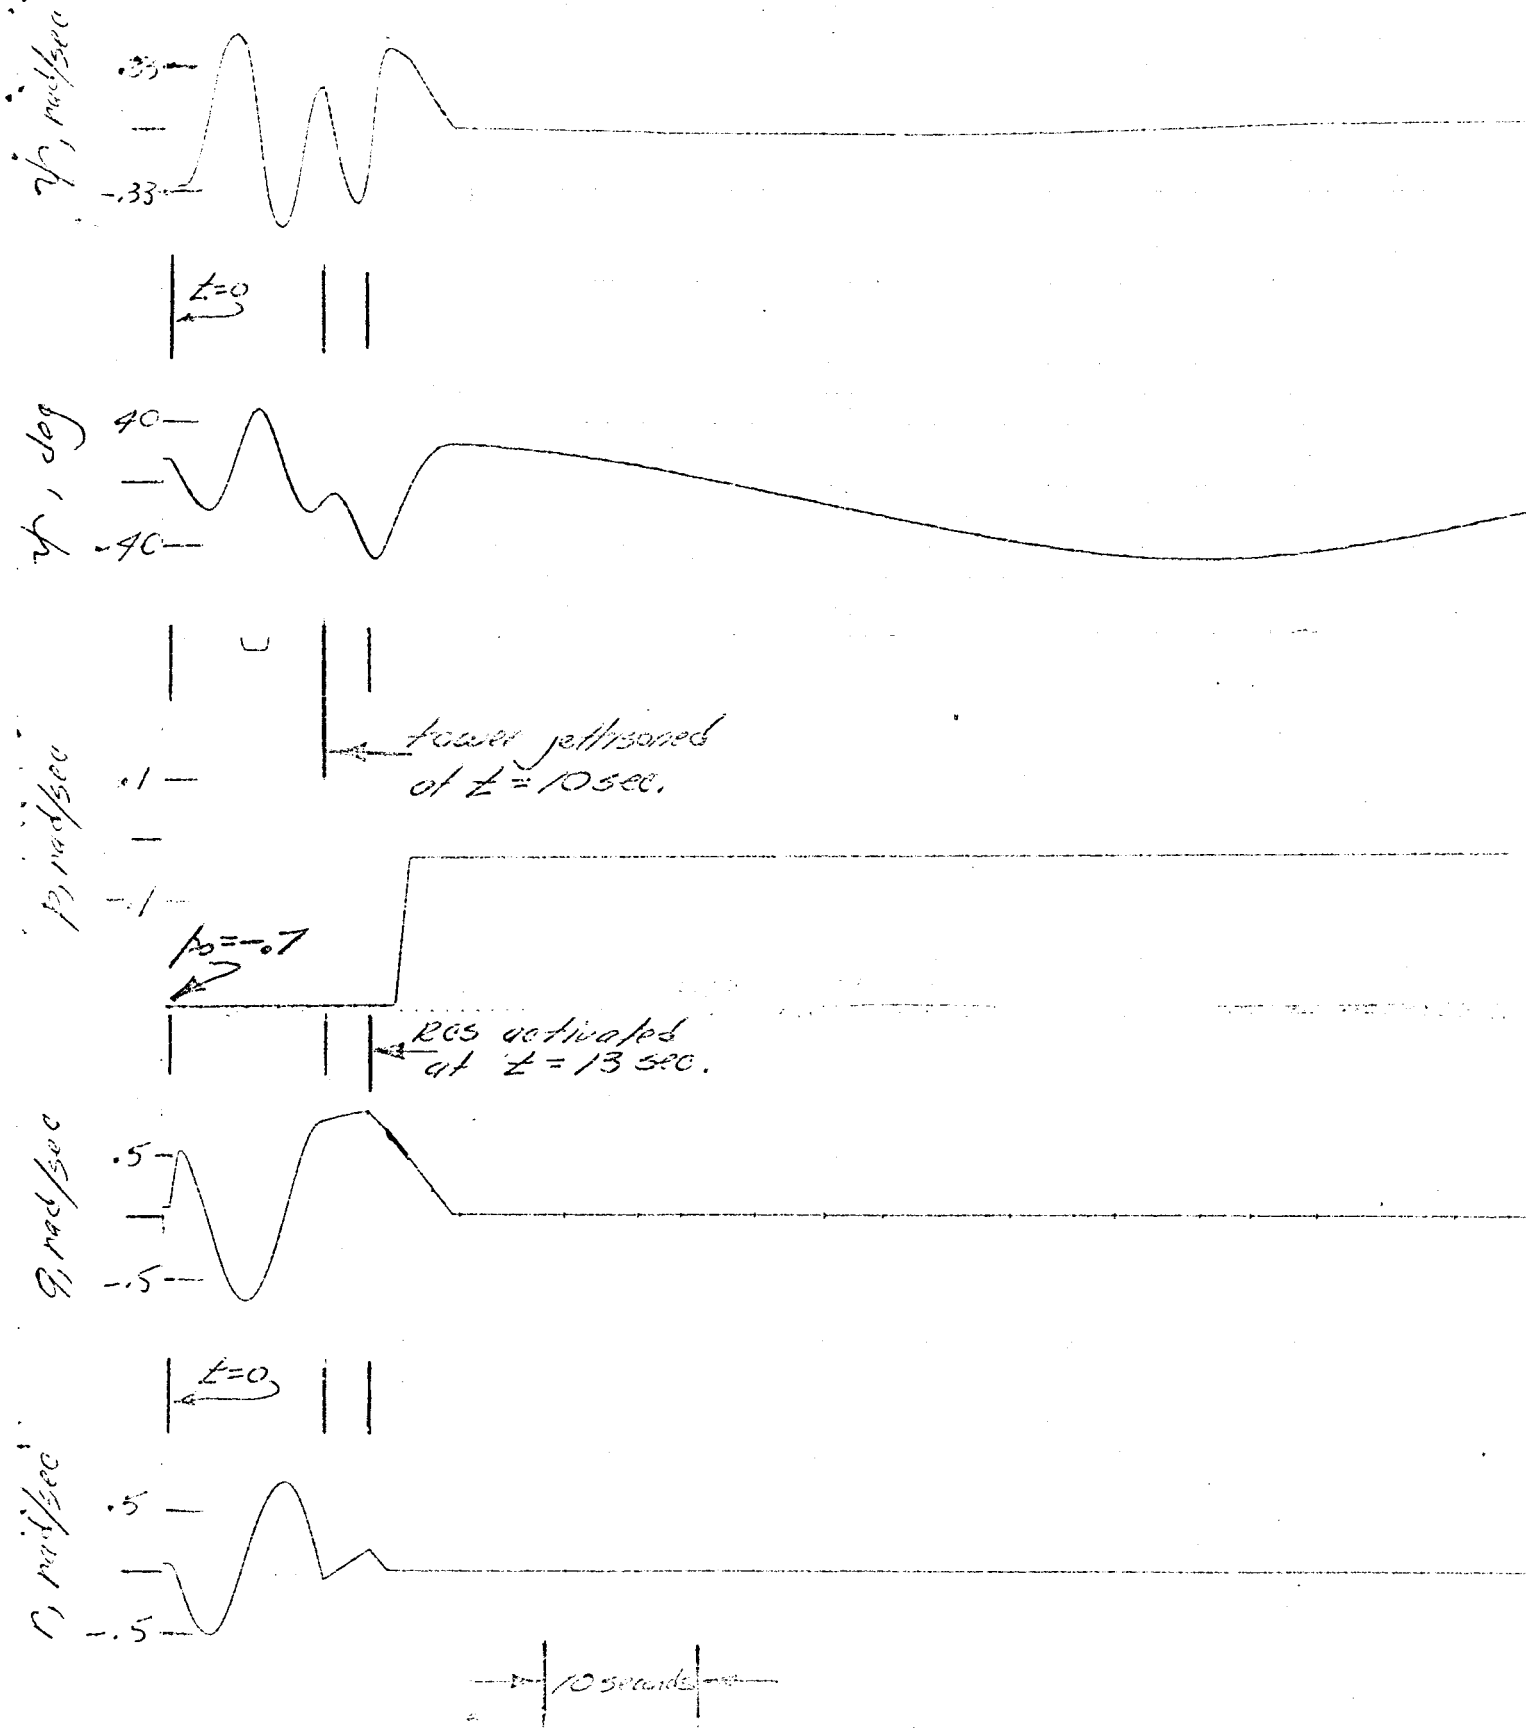 ψ̇, rad/sec
.33
-.33
t=0
ψ, deg
40
-40
tower jettisoned
at t = 10 sec.
p, rad/sec
.1
-.1
p₀=-.7
RCS activated
at t = 13 sec.
q, rad/sec
.5
-.5
t=0
r, rad/sec
.5
-.5
10 seconds